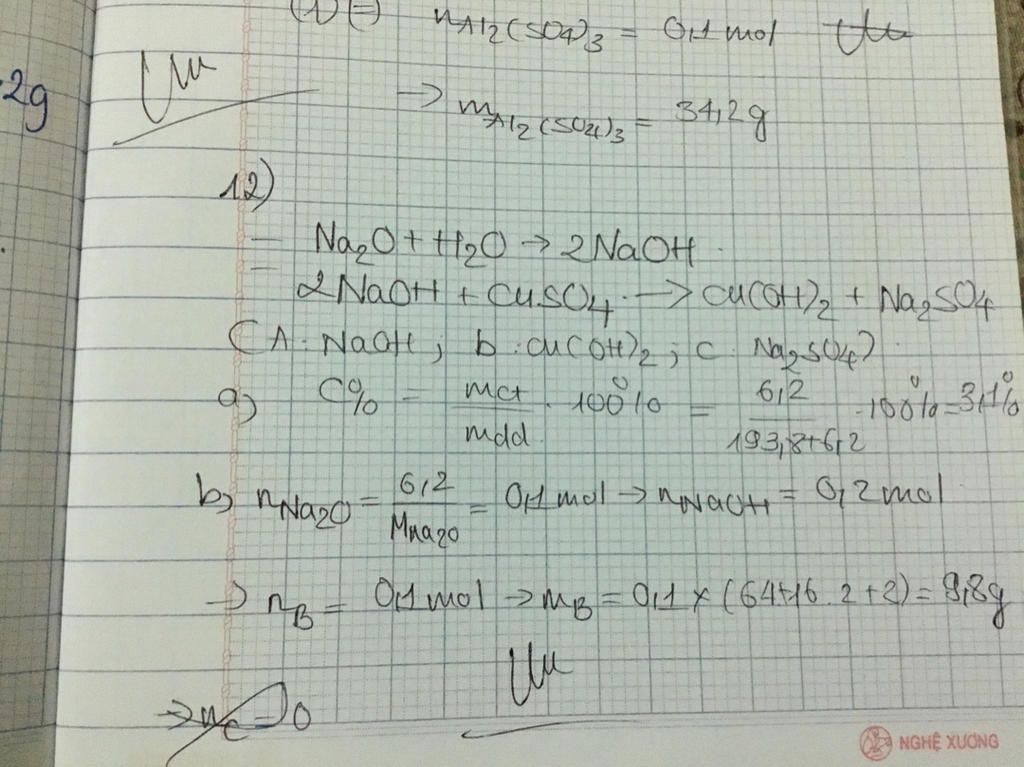 (1) => nAl2(SO4)3 = 0,1 mol
2g
→ mAl2(SO4)3 = 34,2g
12)
— Na2O + H2O → 2NaOH.
— 2NaOH + CuSO4 → Cu(OH)2 + Na2SO4
(A: NaOH; b: Cu(OH)2; c: Na2SO4)
a) C% = mct/mdd . 100% = 6,2/193,8+6,2 . 100% = 3,1%
b, nNa2O = 6,2/MNa2O = 0,1 mol → nNaOH = 0,2 mol
→ nB = 0,1 mol → mB = 0,1 x (64+16.2+2) = 9,8g
→ nC = 0
NGHỆ XƯƠNG